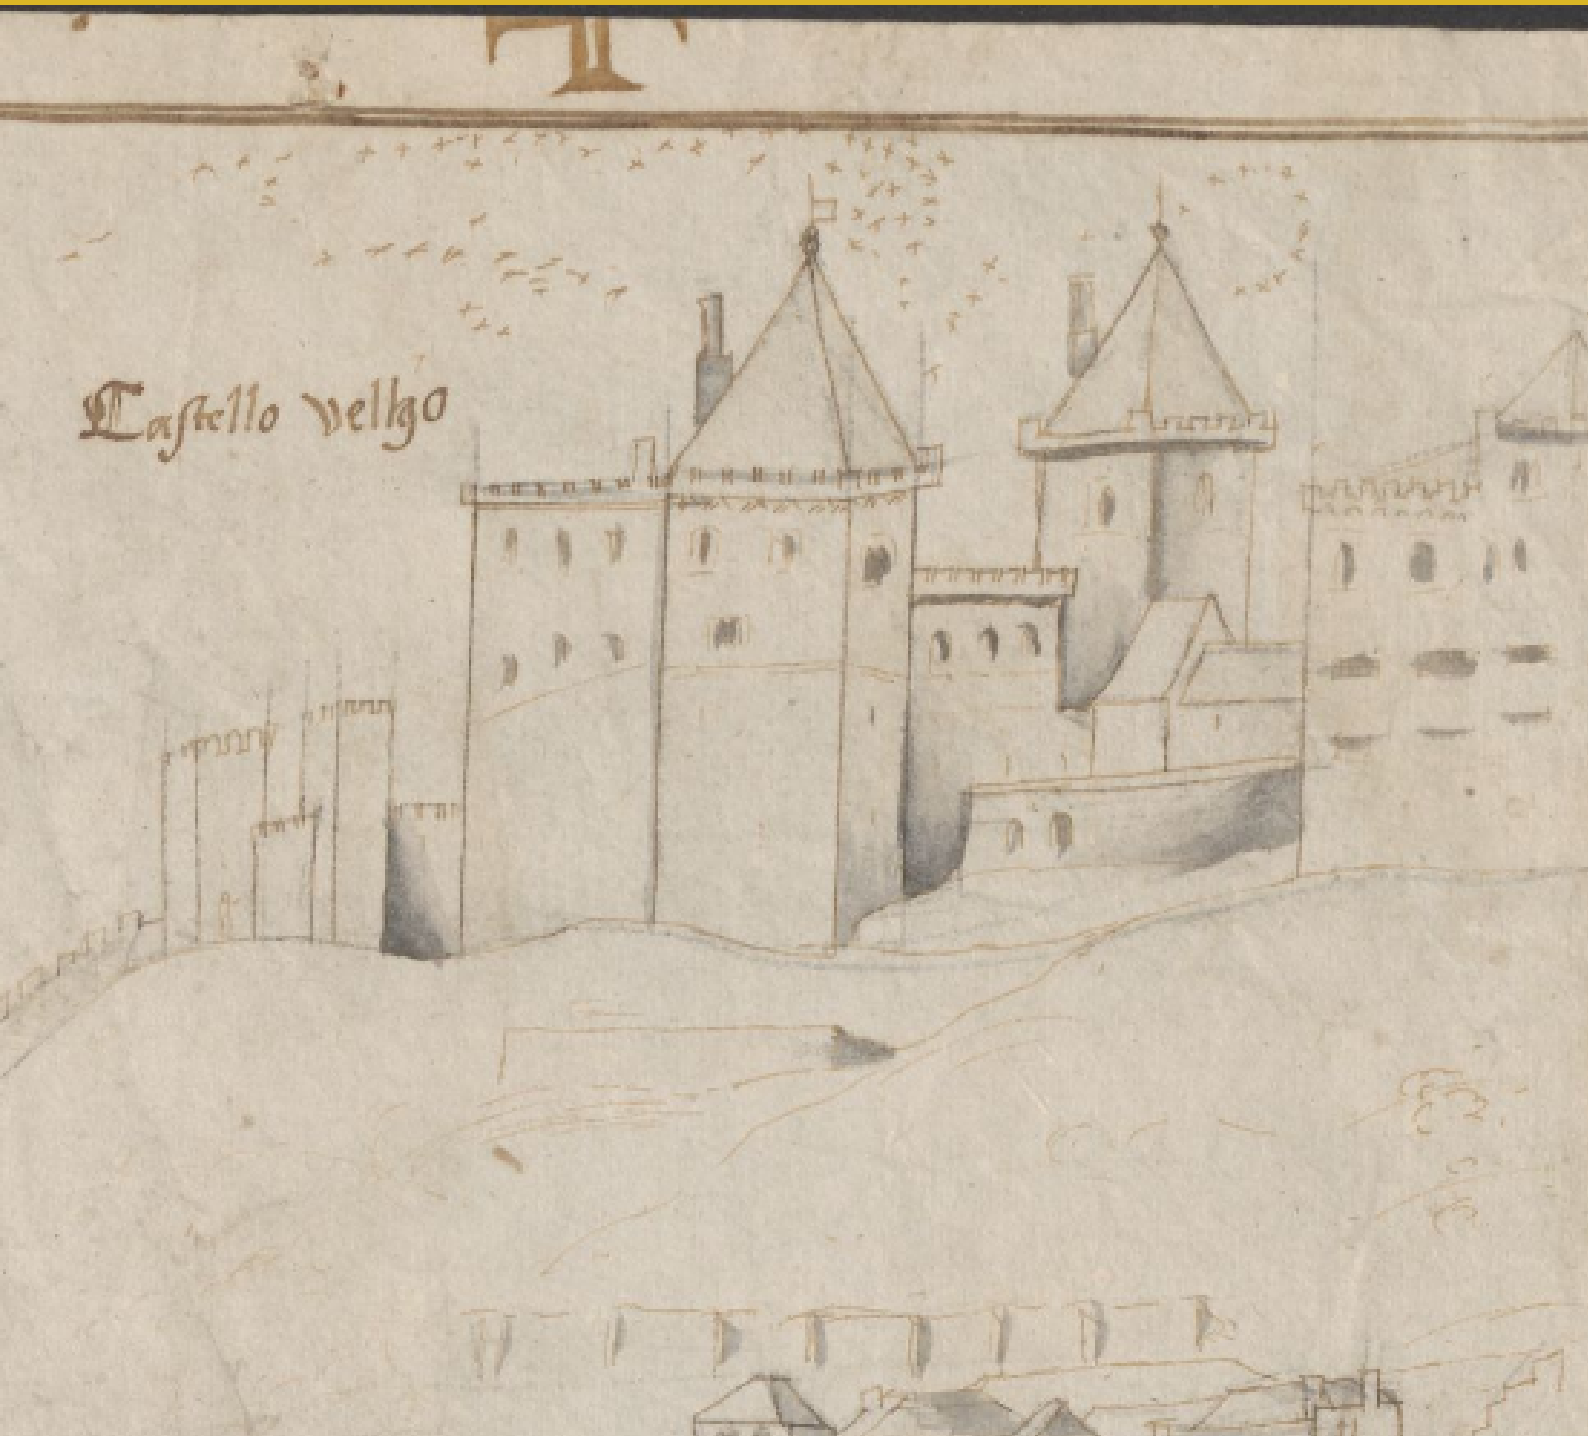 Castello velho